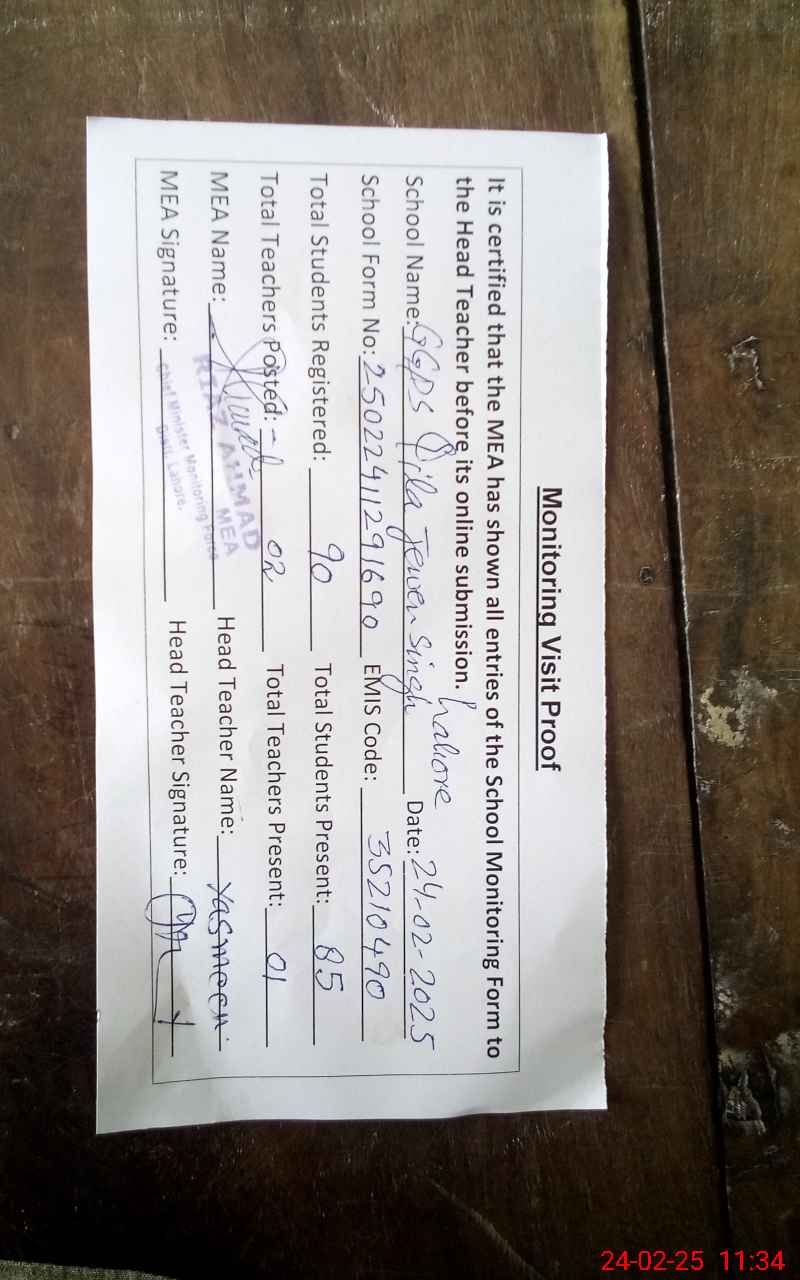 Monitoring Visit Proof
It is certified that the MEA has shown all entries of the School Monitoring Form to
the Head Teacher before its online submission.
Lahore
School Name: GGPS Qila Jewen Singh Date: 24-02-2025
School Form No: 25022411291690 EMIS Code: 35210490
Total Students Registered: 90 Total Students Present: 85
Total Teachers Posted: 02 Total Teachers Present: 01
MEA Name: Head Teacher Name: Yasmeen
MEA Signature: Head Teacher Signature:
RIAZ AHMAD
MEA
Chief Minister Monitoring Force
Distt. Lahore.
24-02-25 11:34